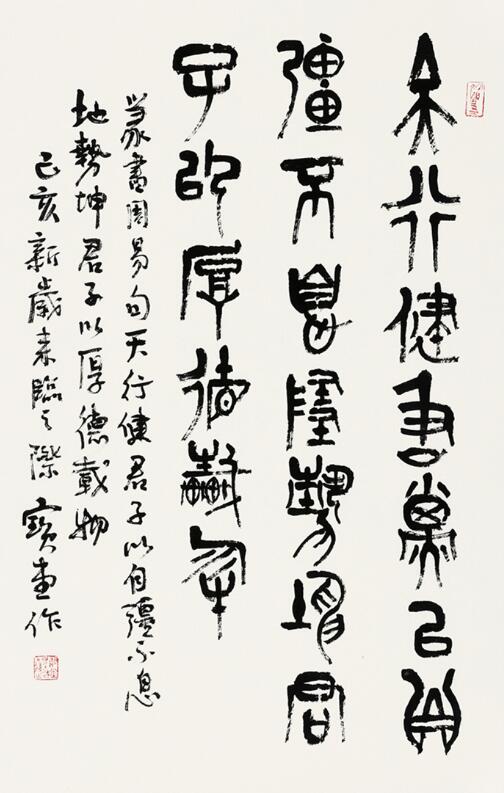 天行健君子以自
彊不息墬勢坤君
子以厚德載物
篆書周易句天行健君子以自彊不息
地勢坤君子以厚德載物
己亥新歲來臨之際寶作